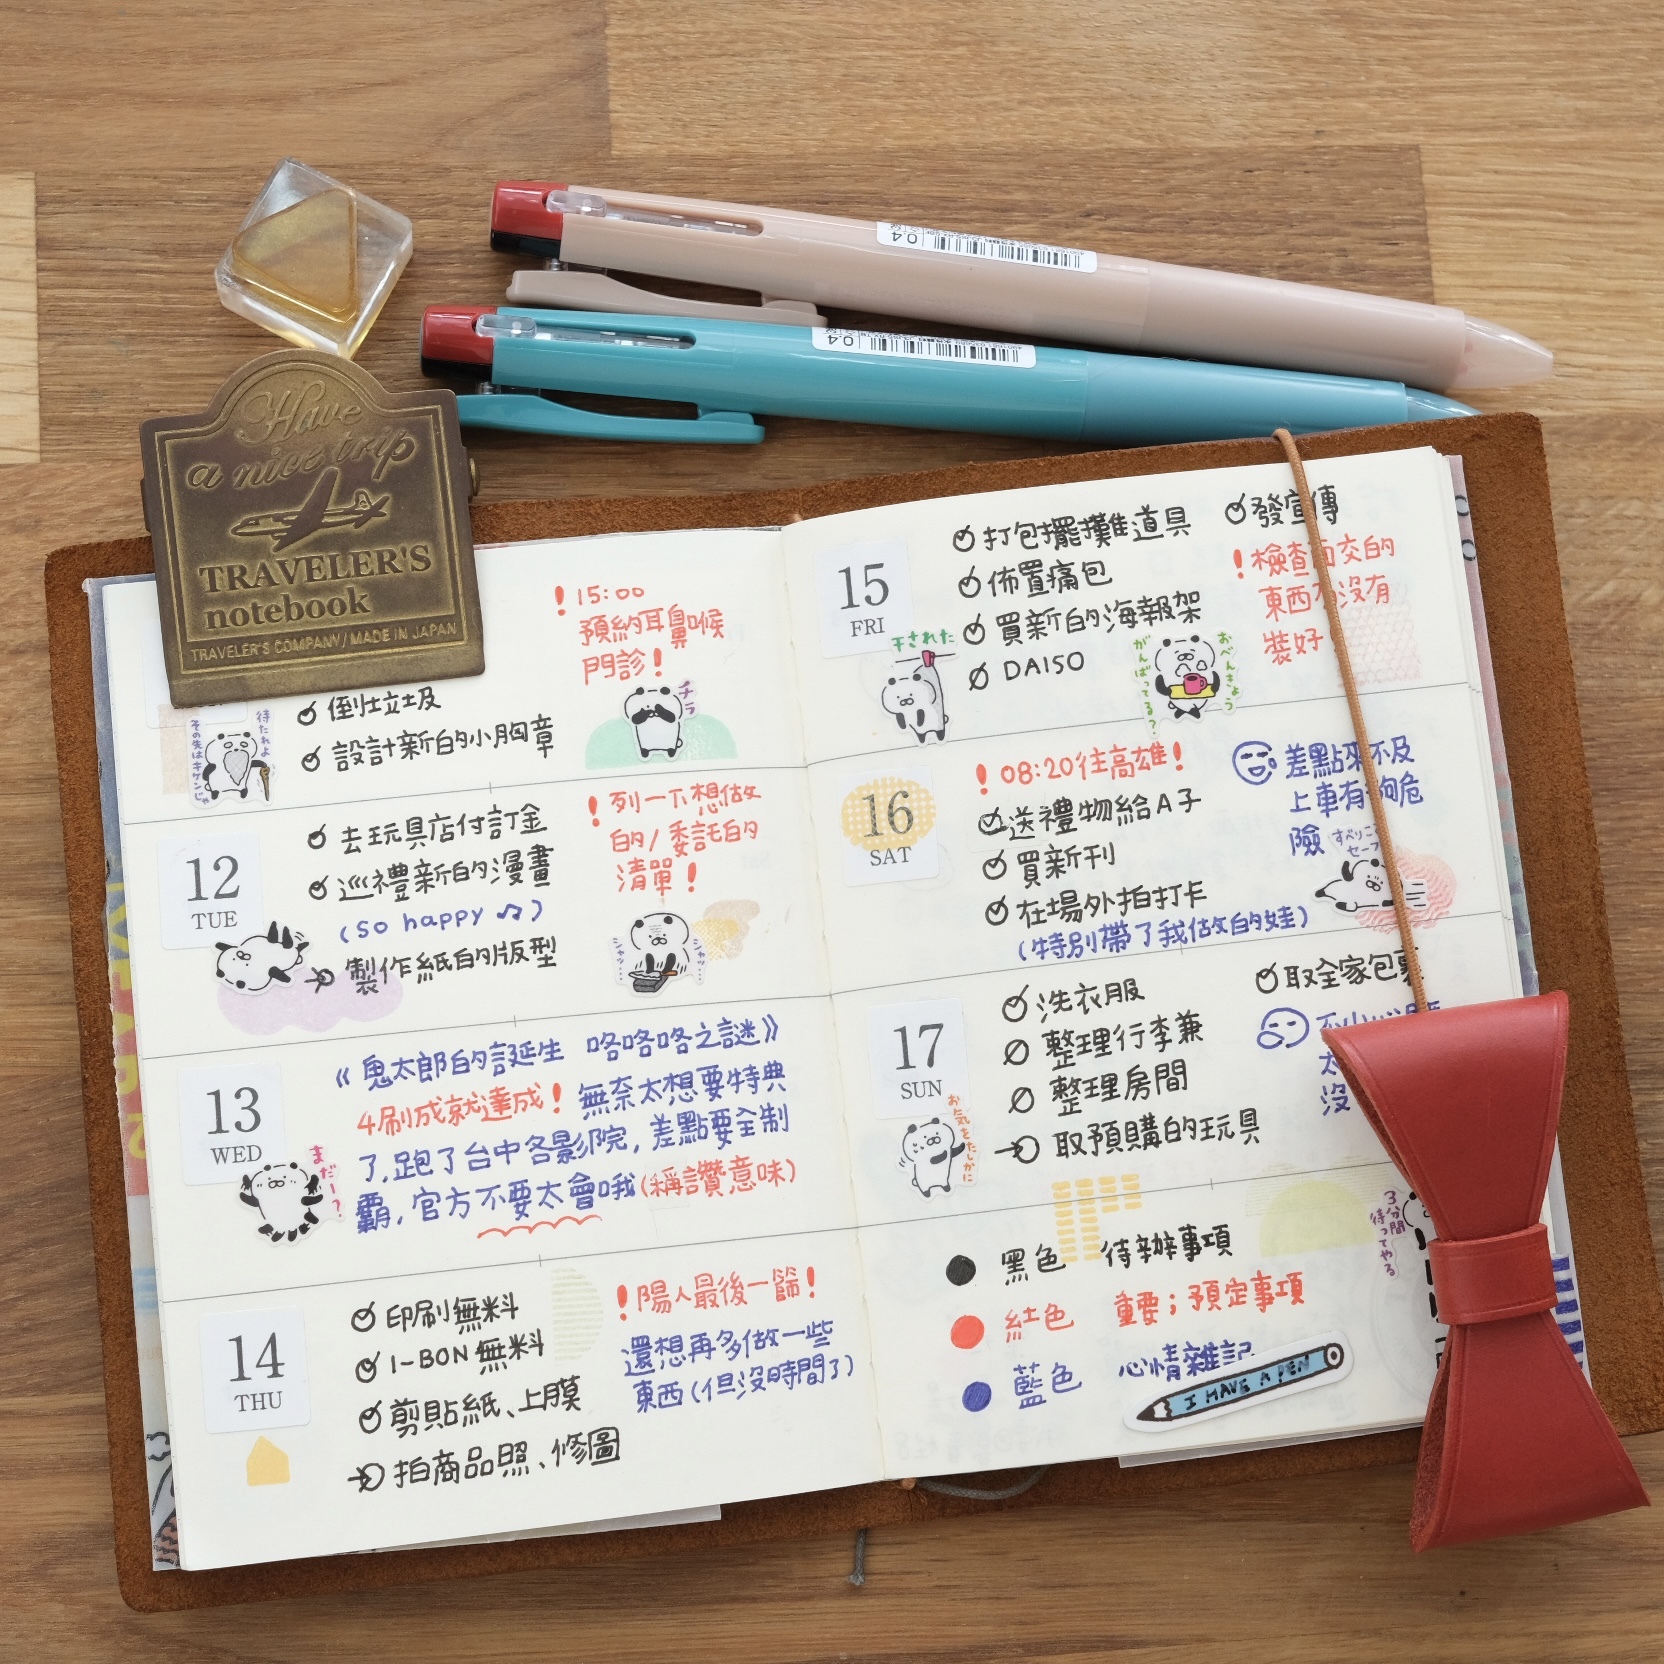 Have
a nice trip
TRAVELER'S
notebook
TRAVELER'S COMPANY/MADE IN JAPAN
0.4
0.4
!15:00
預約耳鼻喉
門診!
倒垃圾
設計新的小胸章
待たれよ
その先はキケンじゃ
チラ
12
TUE
去玩具店付訂金
巡禮新的漫畫
(so happy ♫)
製作紙的版型
!列一下想做
的/委託的
清單!
13
WED
まだー?
《鬼太郎的誕生 咯咯咯之謎》
4刷成就達成!無奈太想要特典
了,跑了台中各影院,差點要全制
霸,官方不要太會哦(稱讚意味)
14
THU
印刷無料
I-BON無料
剪貼紙、上膜
拍商品照、修圖
!陽人最後一篩!
還想再多做一些
東西(但沒時間了)
15
FRI
干された
打包擺攤道具
佈置痛包
買新的海報架
DAISO
發宣傳
!檢查面交的
東西有沒有
裝好
おべんきょう
がんばってる?
16
SAT
!08:20往高雄!
送禮物給A子
買新刊
在場外拍打卡
(特別帶了我做的娃)
差點來不及
上車有夠危
險
すべりこみ
セーフ
17
SUN
お気をたしかに
洗衣服
整理行李兼
整理房間
取預購的玩具
取全家包裹
太
沒
黑色 待辦事項
紅色 重要;預定事項
藍色 心情雜記
3分間
待ってやる
I HAVE A PEN